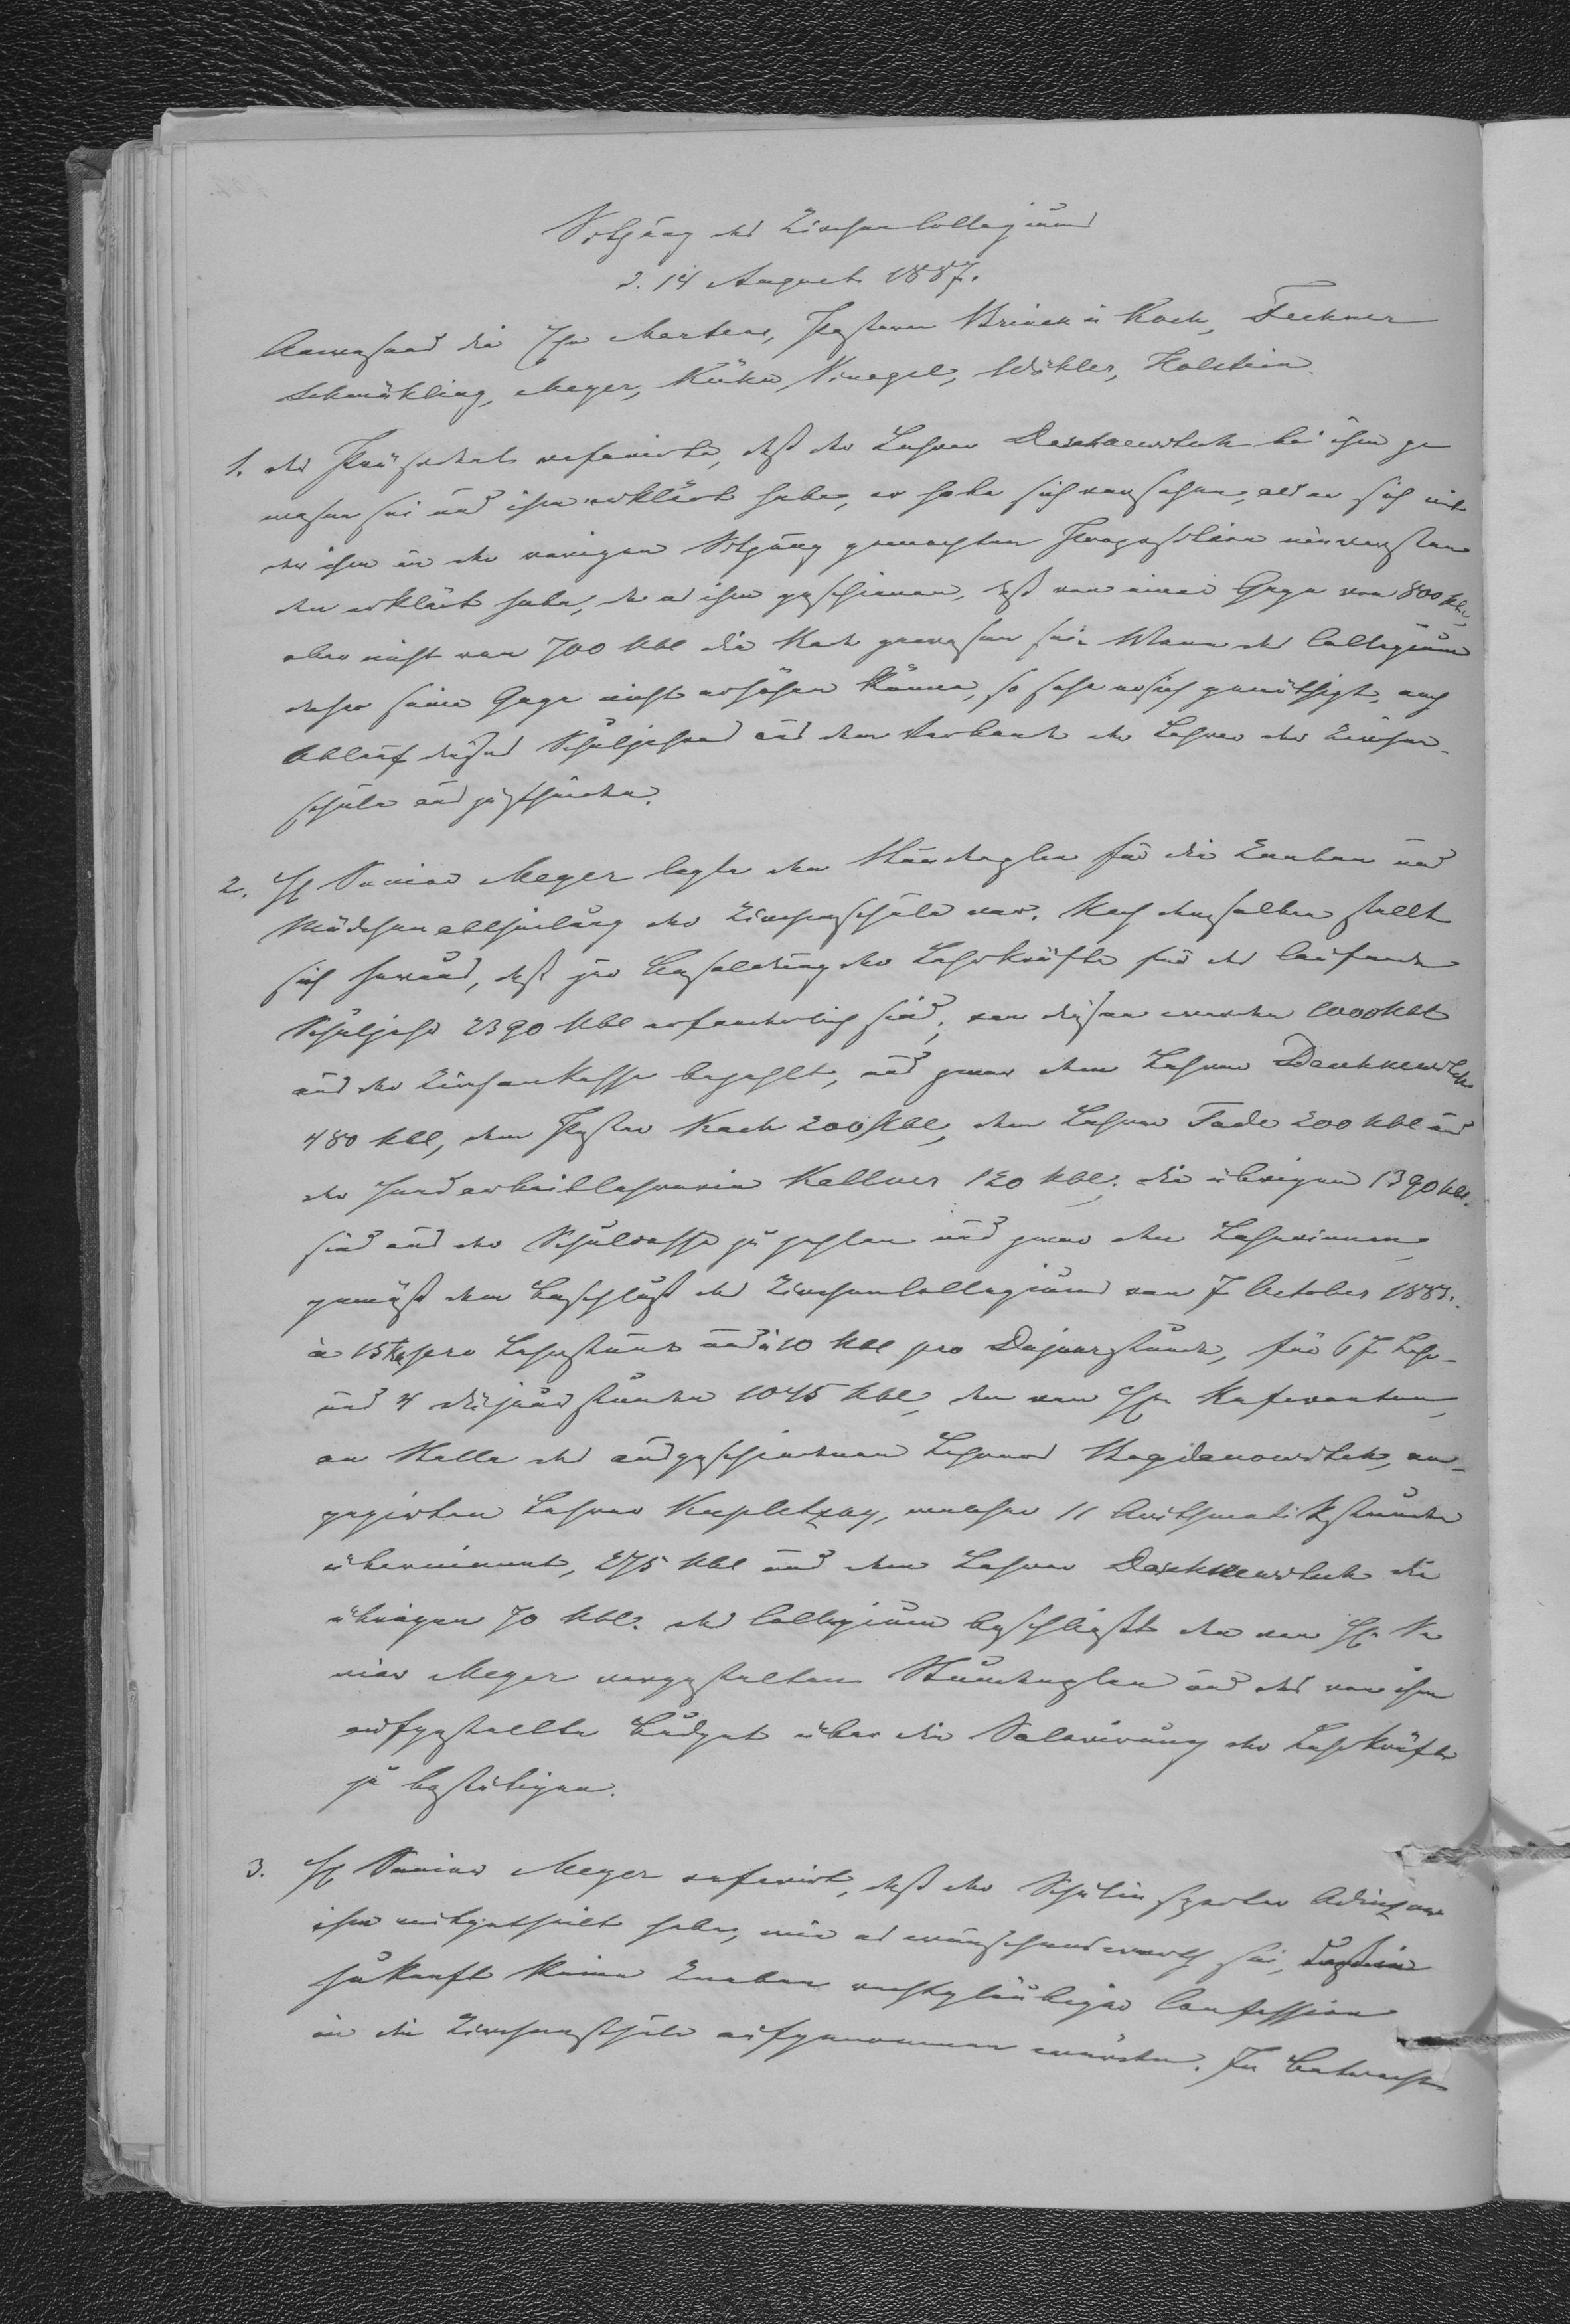 Sitzung des Kirchen Collegiums
d. 14 August 1887.
Anwesend die Hn Mertens, Pastoren Brinck u Koch, Fechner
Schmähling, Meyer, Kühn, Vinagel, Wöhler, Holstein.
1. Das Präsidat referirte, daß der Lehrer Daschkewitsch bei ihm ge
wesen sei und ihm erklärt habe, er habe sich versehen, als er sich mit
der ihm in der vorigen Sitzung gemachten Proposition einverstan
den erklärt habe, da es ihm geschienen, daß von einer Gage von 800 Rbl,
aber nicht von 700 Rbl die Rede gewesen sei. Wenn das Collegium
daher seine Gage nicht erhöhen könne, so sehe er sich genöthigt, nach
Ablauf dieses Schuljahres aus dem Verbande der Lehrer der Kirchen-
schule auszuscheiden.
2. H Senior Meyer legte den Stundenplan für die Knaben und
Mädchenabtheilung der Kirchenschule vor. Nach demselben stellt
sich heraus, daß zur Besoldung der Lehrkräfte für das laufende
Schuljahr 2390 Rbl erforderlich sind; von diesen werden 1000 Rbl
aus der Kirchenkasse bezahlt, und zwar dem Lehrer Daschkewitsch
480 Rbl, dem Pastor Koch 200 Rbl, dem Lehrer Fade 200 Rbl und
der Handarbeitlehrerin Kellner 120 Rbl; die übrigen 1390 Rbl.
sind aus der Schulcasse zu zahlen und zwar den Lehrerinnen,
gemäß dem Beschluß des Kirchencollegiums vom 7. October 1883.
à 15 Rbl pro Lehrstunde und à 10 Rbl pro Dejourstunde, für 67 Lehr-
und 4 Dejourstunden 1045 Rbl, dem vom Hn Referenten,
an Stelle des ausgeschiedenen Lehrers Bogdanowitsch, en-
gagirten Lehrer Kupletzky, welcher 11 Arithmetikstunden
übernimmt, 275 Rbl und dem Lehrer Daschkewitsch die
übrigen 70 Rbl. Das Collegium beschließt den von Hn Se
nior Meyer vorgestellten Stundenplan und das von ihm
aufgestellte Budget über die Salarirung der Lehrkräfte
zu bestätigen.
3. H Senior Meyer referirt, daß der Schulinspector
ihm mitgetheilt habe, wie es wünschenswerth sei, daß in
Zukunft keine Knaben rechtgläubiger Confession
in die Kirchenschule aufgenommen würden. In Betracht